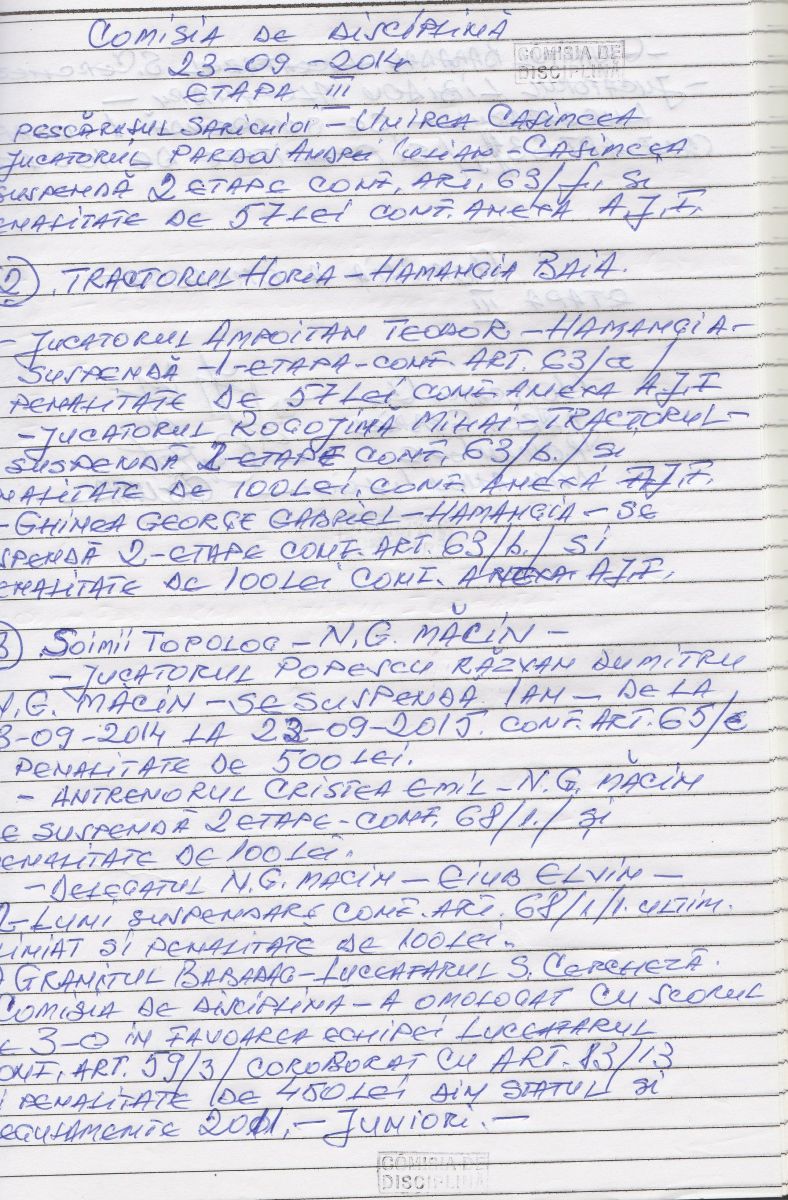 COMISIA DE DISCIPLINĂ
23-09-2014
COMISIA DE
DISCIPLINA
ETAPA III
PESCĂRUȘUL SARICHIOI - UNIREA CAȘIMCEA
JUCATORUL PARDOS ANDREI IULIAN - CAȘIMCEA
SUSPENDĂ 2 ETAPE CONF. ART. 63/f. și
ENALITATE DE 57 LEI CONF. ANEXA A.J.F.
2. TRACTORUL HORIA - HAMANGIA BAIA.
- JUCATORUL AMPOITAN TEODOR - HAMANGIA -
SUSPENDĂ -1- ETAPA - CONF. ART. 63/a /
PENALITATE DE 57 LEI CONF. ANEXA A.J.F
- JUCATORUL ROGOJINĂ MIHAI - TRACTORUL -
SUSPENDĂ 2 - ETAPE CONF. 63/b. / și
NALITATE DE 100 LEI. CONF. ANEXA A.J.F.
- GHINEA GEORGE GABRIEL - HAMANGIA - SE
SPENDĂ 2 - ETAPE CONF. ART. 63/b. / SI
ENALITATE DE 100 LEI CONF. ANEXA A.J.F.
3 SOIMII TOPOLOG - N.G. MĂCIN -
- JUCATORUL POPESCU RĂZVAN DUMITRU
N.G. MĂCIN - SE SUSPENDĂ 1 AN - DE LA
3-09-2014 LA 22-09-2015. CONF. ART. 65/e
PENALITATE DE 500 LEI.
- ANTRENORUL CRISTEA EMIL - N.G. MĂCIN
E SUSPENDĂ 2 ETAPE - CONF. 68/1. / și
ENALITATE DE 100 LEI.
- DELEGATUL N.G. MACIN - EIUB ELVIN -
2 - LUNI SUSPENDARE CONF. ART. 68/1/1. ULTIM.
LINIAT SI PENALITATE DE 100 LEI.
) GRANITUL BABADAG - LUCEAFARUL S. CERCHEZĂ.
COMISIA DE DISCIPLINA - A OMOLOGAT CU SCORUL
E 3-0 IN FAVOAREA ECHIPEI LUCEAFARUL
ONF. ART. 59/3/ COROBORAT CU ART. 83/13
I PENALITATE DE 450 LEI DIN STATUL SI
EGULAMENTE 2011. - JUNIORI. -
COMISIA DE
DISCIPLINA